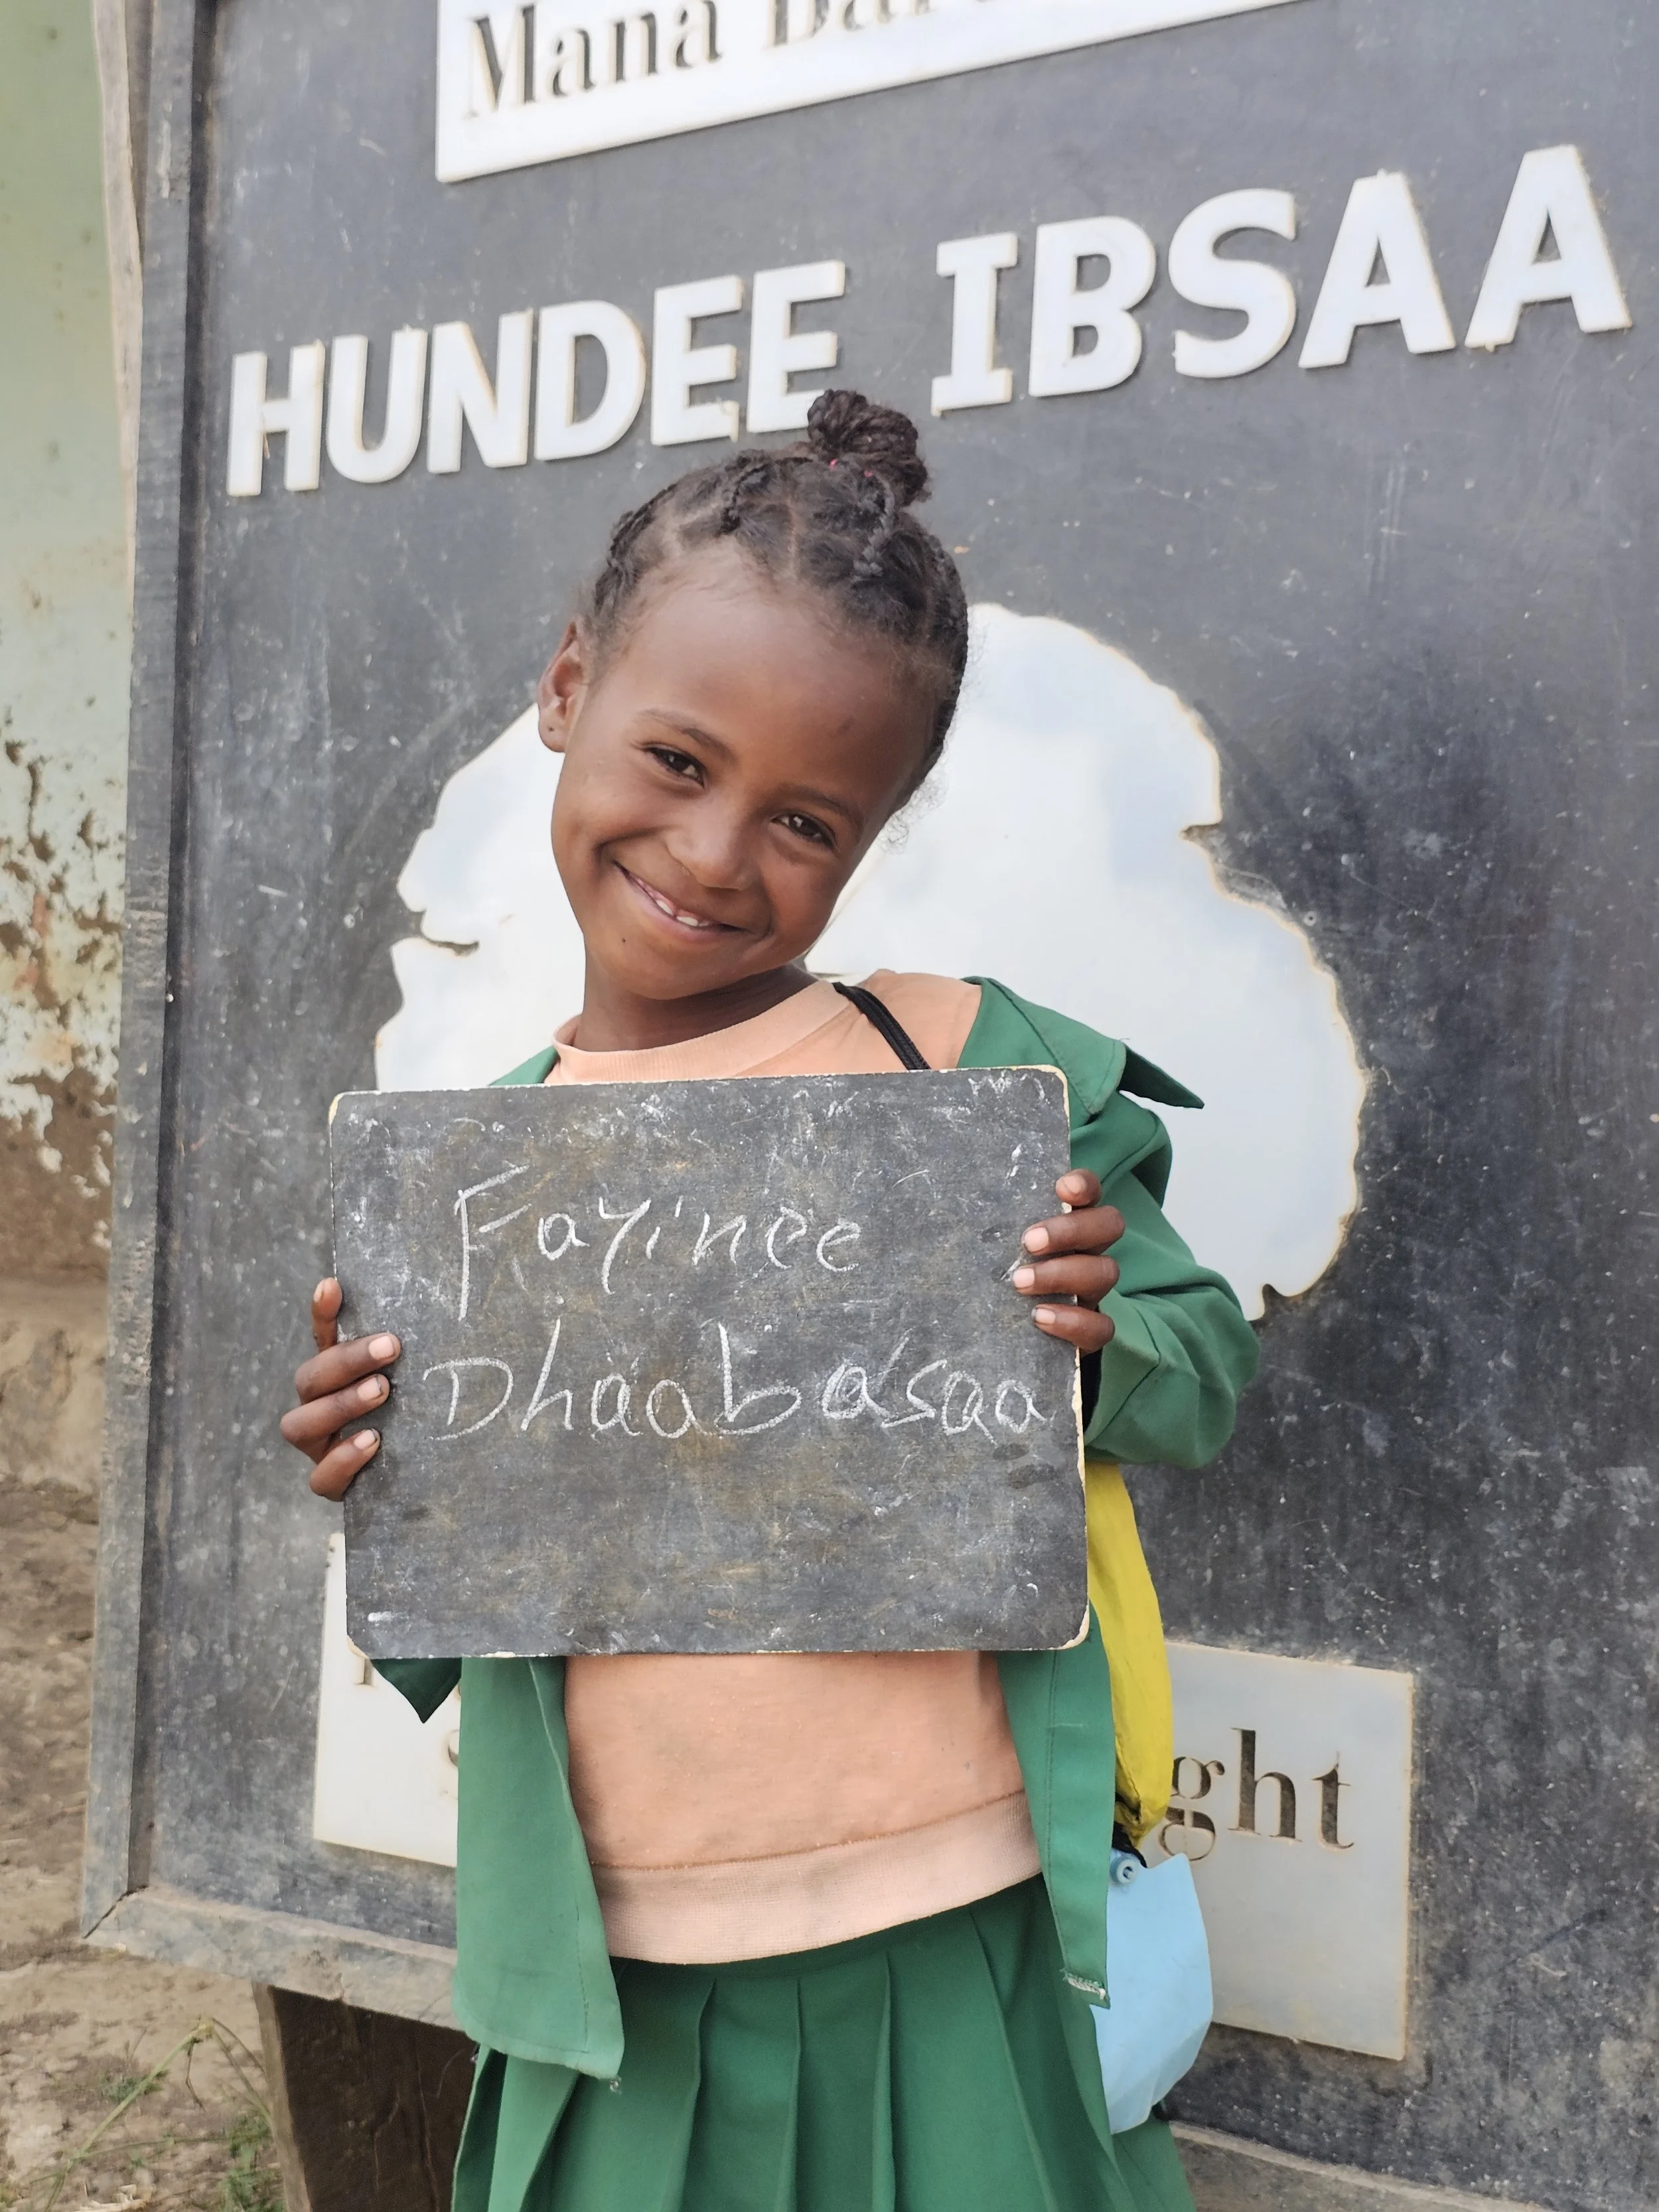 Mana
HUNDEE IBSAA
Fayinee
Dhaabasaa
ght